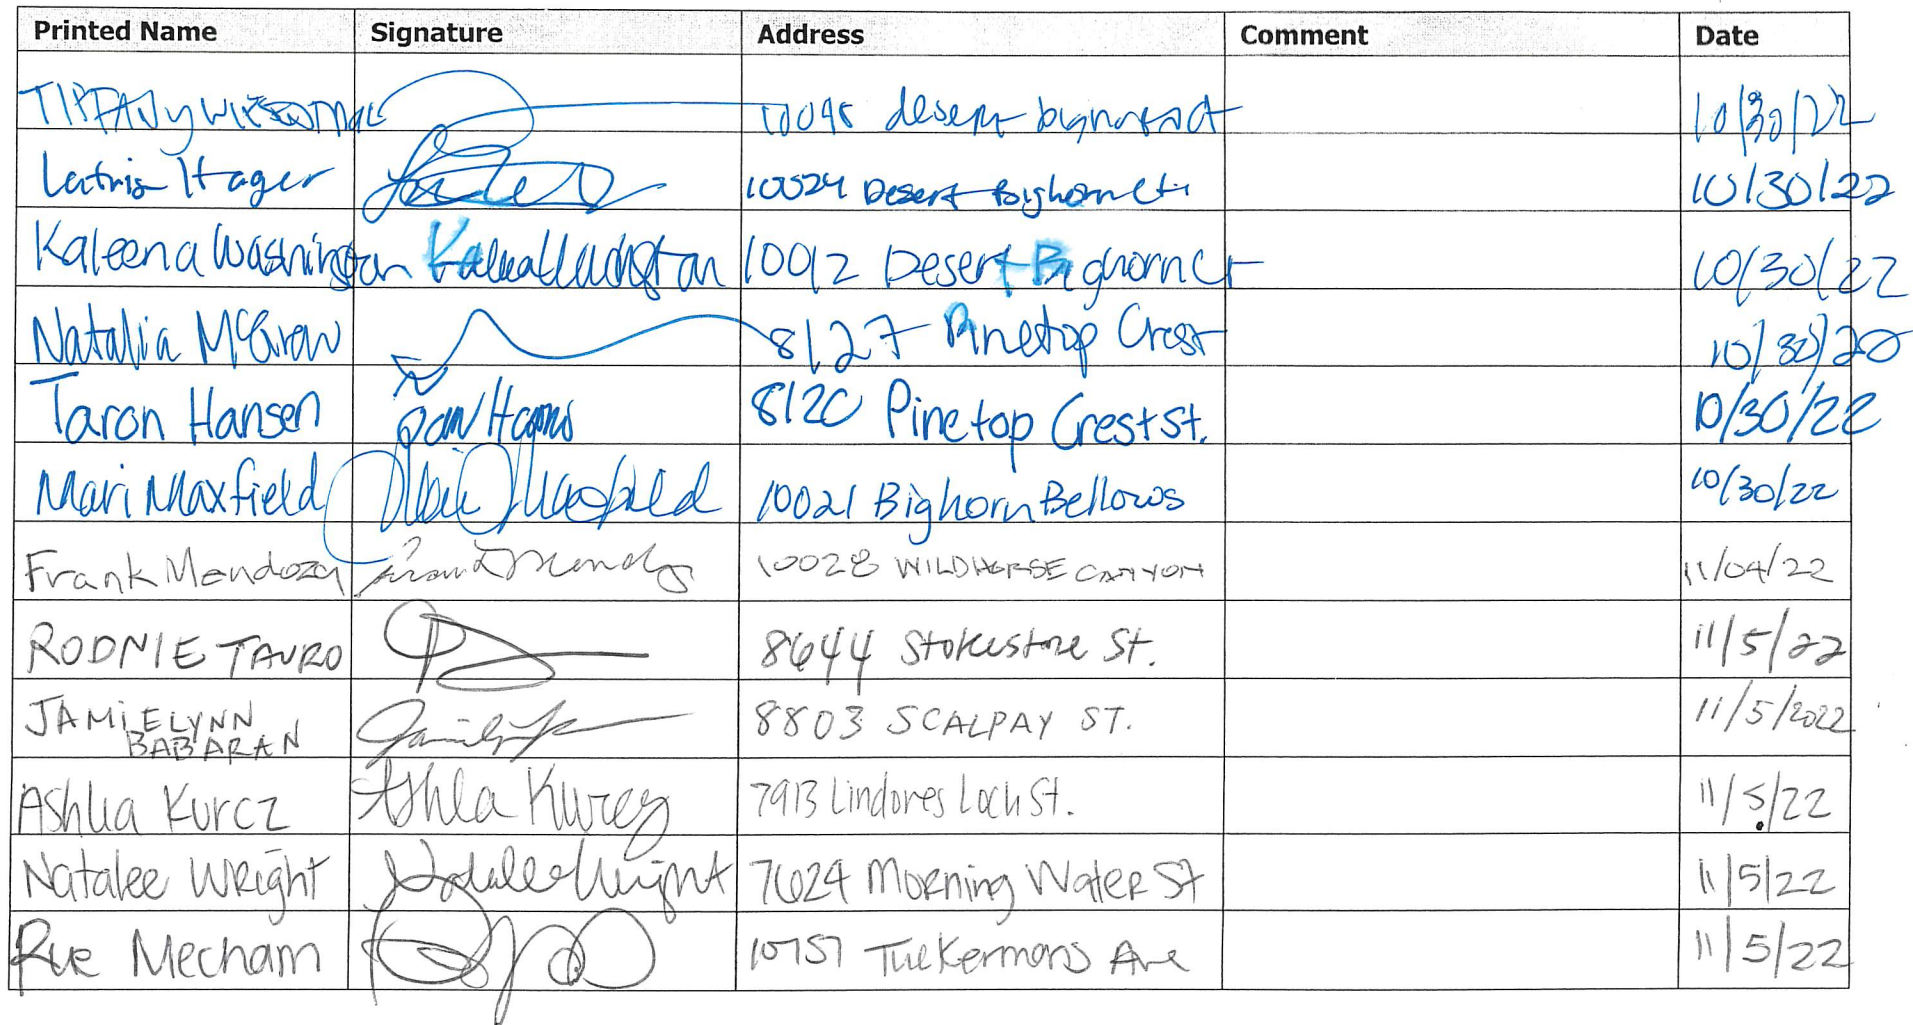 Printed Name Signature Address Comment Date
TIFFANY 10/30/22
Latria Hager 10024 Desert Bighorn Ct. 10/30/22
Kaleena Washington Kaleena Washington 10012 Desert Bighorn Ct 10/30/22
Natalia McGrew 8127 Pinetop Crest 10/30/20
Taron Hansen 8120 Pinetop Crest St. 10/30/22
Mari Maxfield Mari Maxfield 10021 Bighorn Bellows 10/30/22
Frank Mendoza Frank Mendoza 10028 WILDHORSE CANYON 11/04/22
RODNIE TAURO 8644 Stokestone St. 11/5/22
JAMIELYNN 8803 SCALPAY ST. 11/5/2022
BABARAN
Ashlia Kurcz Ashla Kurcz 7913 Lindores Loch St. 11/5/22
Natalee Wright Natalee Wright 7624 Morning Water St 11/5/22
Rue Mecham 10757 Tuckermans Ave 11/5/22